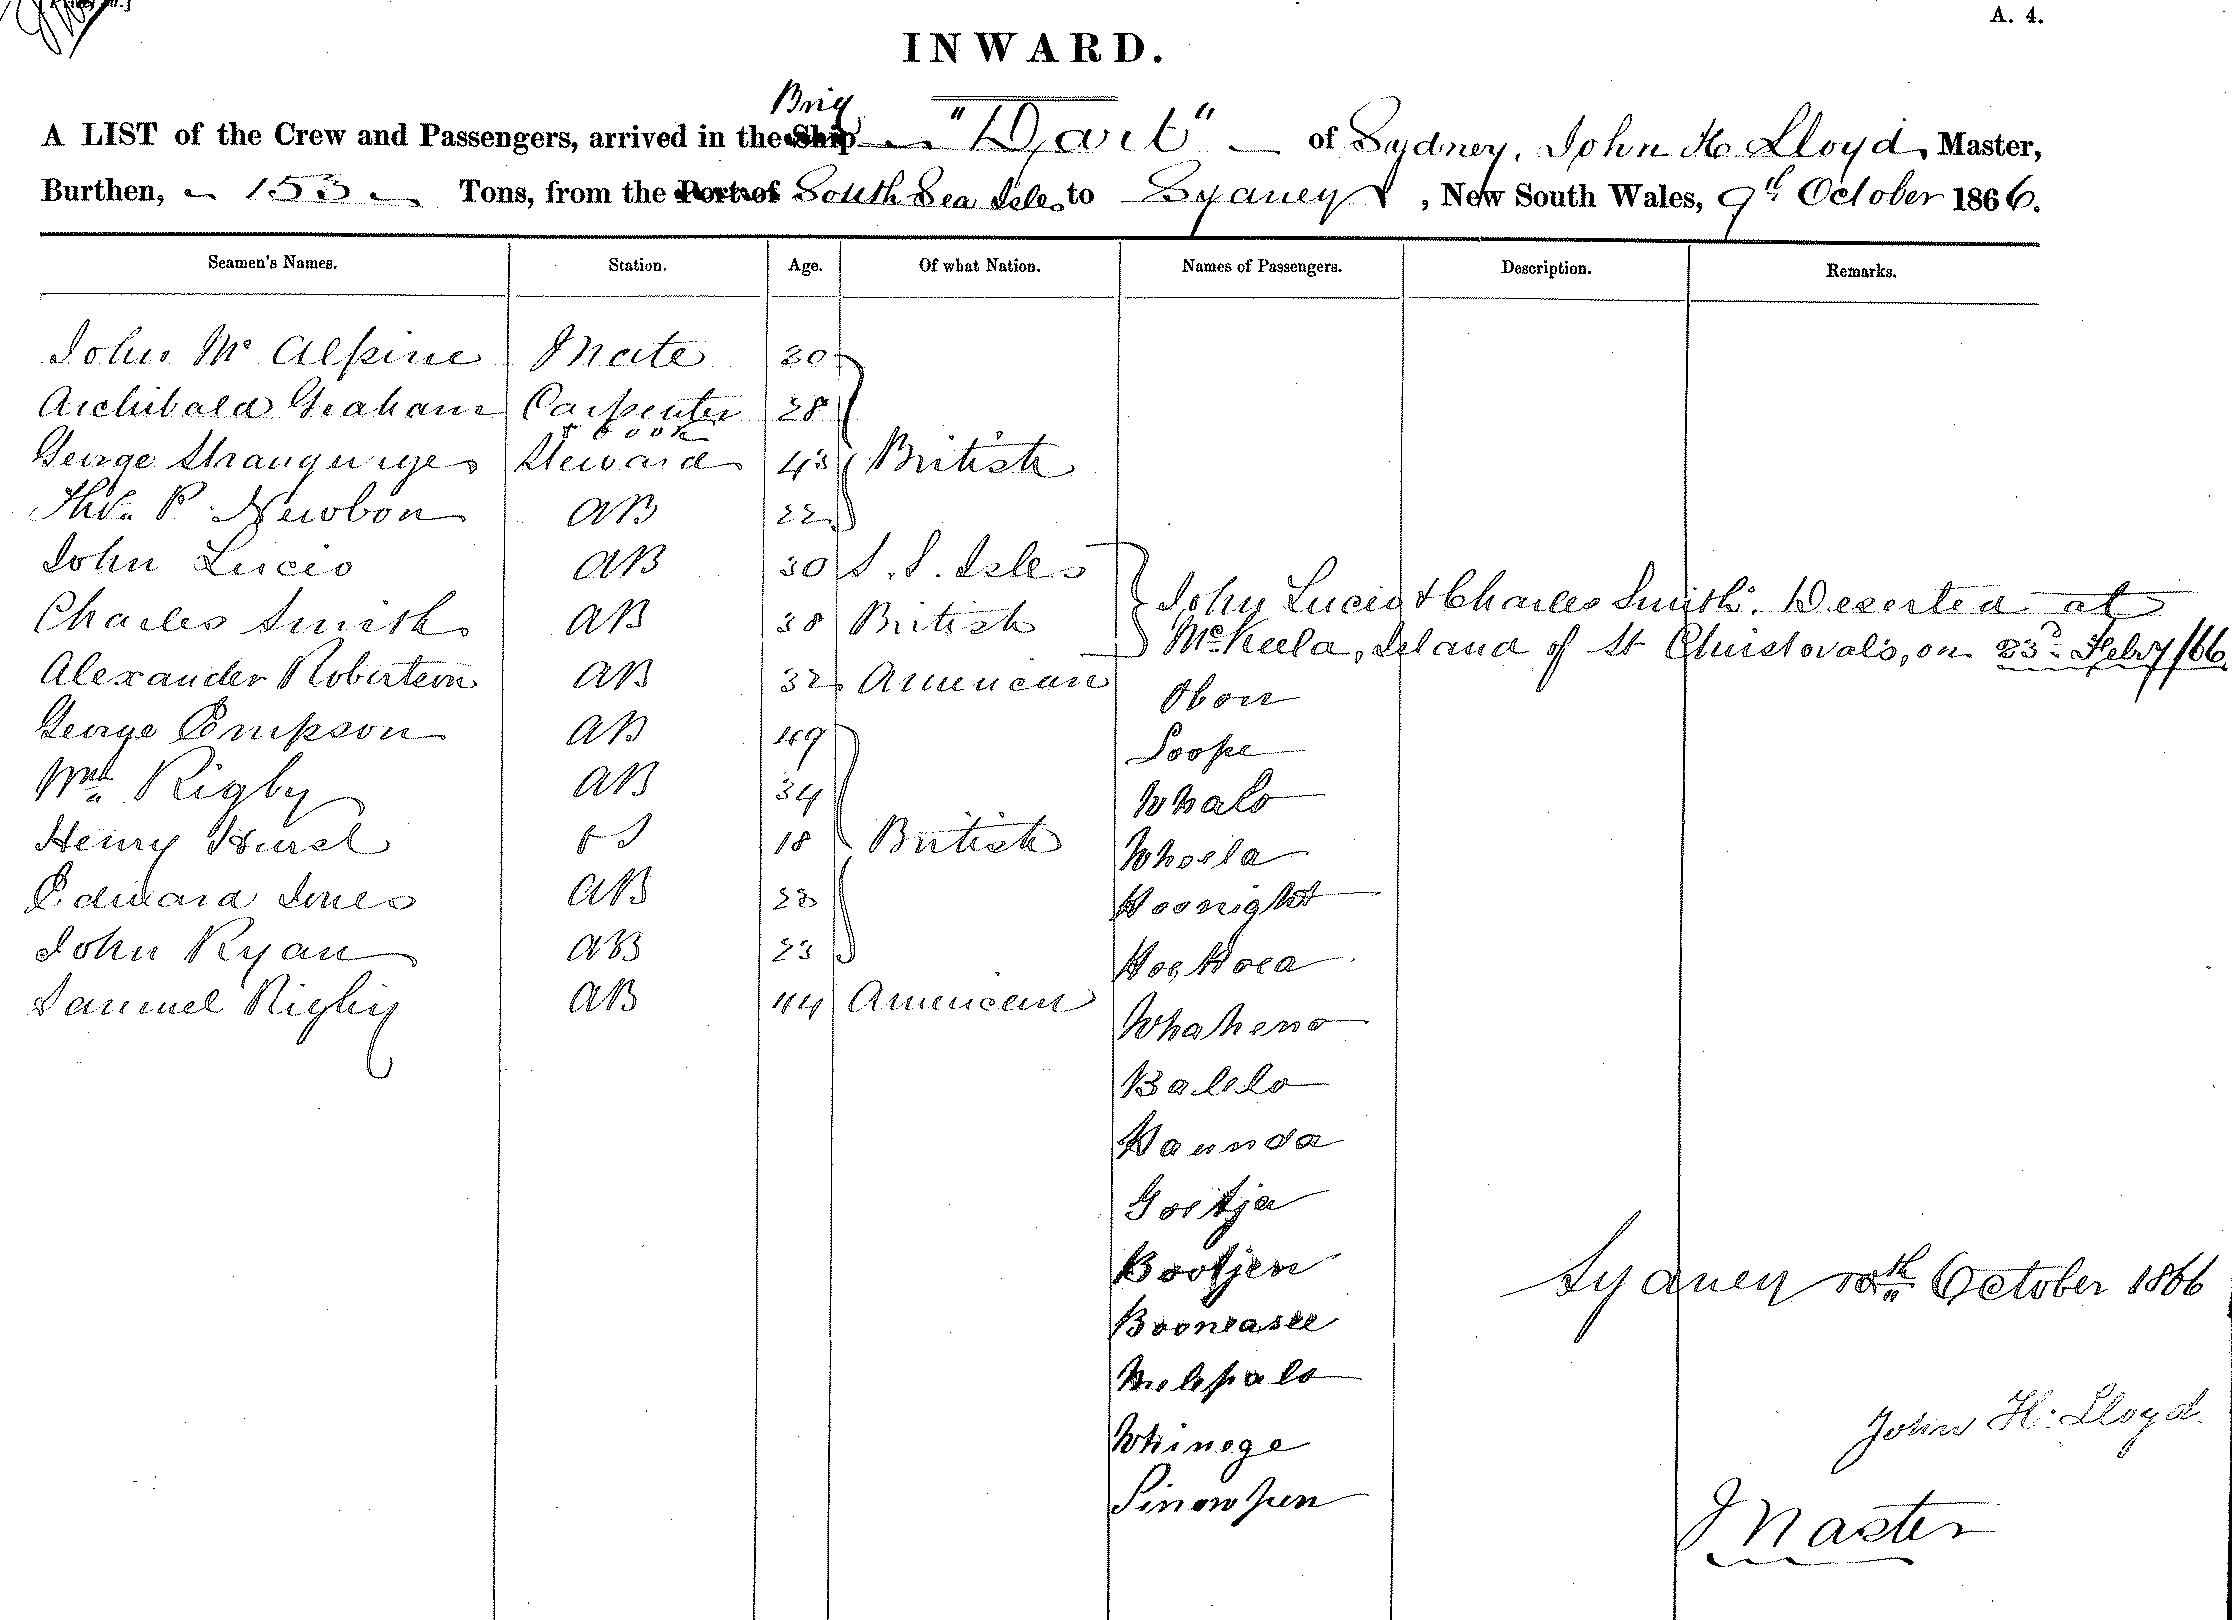 A. 4.
INWARD.
Brig
A LIST of the Crew and Passengers, arrived in the Ship "Dart" of Sydney, John H. Lloyd, Master,
Burthen, 153 Tons, from the Port of South Sea Isles to Sydney, New South Wales, 9th October 1866.
Seamen's Names. Station. Age. Of what Nation. Names of Passengers. Description. Remarks.
John Mc Alpine Mate 30
Archibald Graham Carpenter 28
& Cook
George Steward 43 British
Thos. P. Newbon AB 22
John Lucio AB 30 S. S. Isles
John Lucio & Charles Smith. Deserted at
Charles Smith AB 38 British
Island of St Christovals, on 23rd Feby/66
Alexander Robertson AB 32 American
Obon
George Empson AB 49
Soope
Wm. Rigby AB 34
Whalo
Henry Hurst OS 18 British
Whoela
Edward Jones AB 22
Hoonight
John Ryan AB 23
Samuel Rigby AB 44 American
Whaheno
Balelo
Haunda
Gortja
Bootjen
Sydney 10th October 1866
Booneasee
Molepalo
John H. Lloyd.
Whinege
Sinowpen
Master